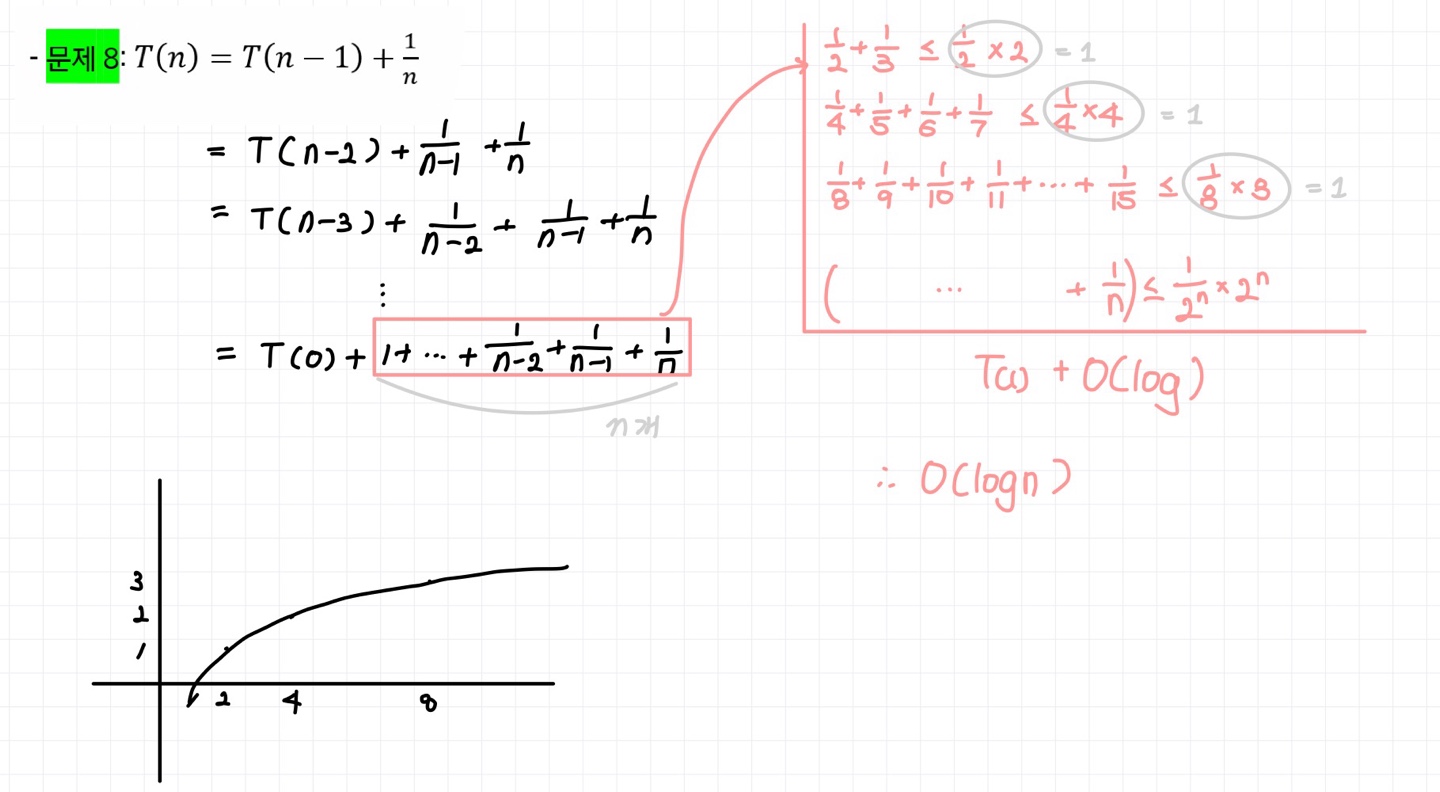 - 문제 8: T(n) = T(n − 1) + 1/n
= T(n-2) + 1/(n-1) + 1/n
= T(n-3) + 1/(n-2) + 1/(n-1) + 1/n
⋮
= T(0) + 1+ ... + 1/(n-2) + 1/(n-1) + 1/n
n개
1/2 + 1/3 ≤ 1/2 × 2 = 1
1/4 + 1/5 + 1/6 + 1/7 ≤ 1/4 × 4 = 1
1/8 + 1/9 + 1/10 + 1/11 + ... + 1/15 ≤ 1/8 × 8 = 1
( ... + 1/n) ≤ 1/2ⁿ × 2ⁿ
T(1) + O(log)
∴ O(logn)
3
2
1
2 4 8